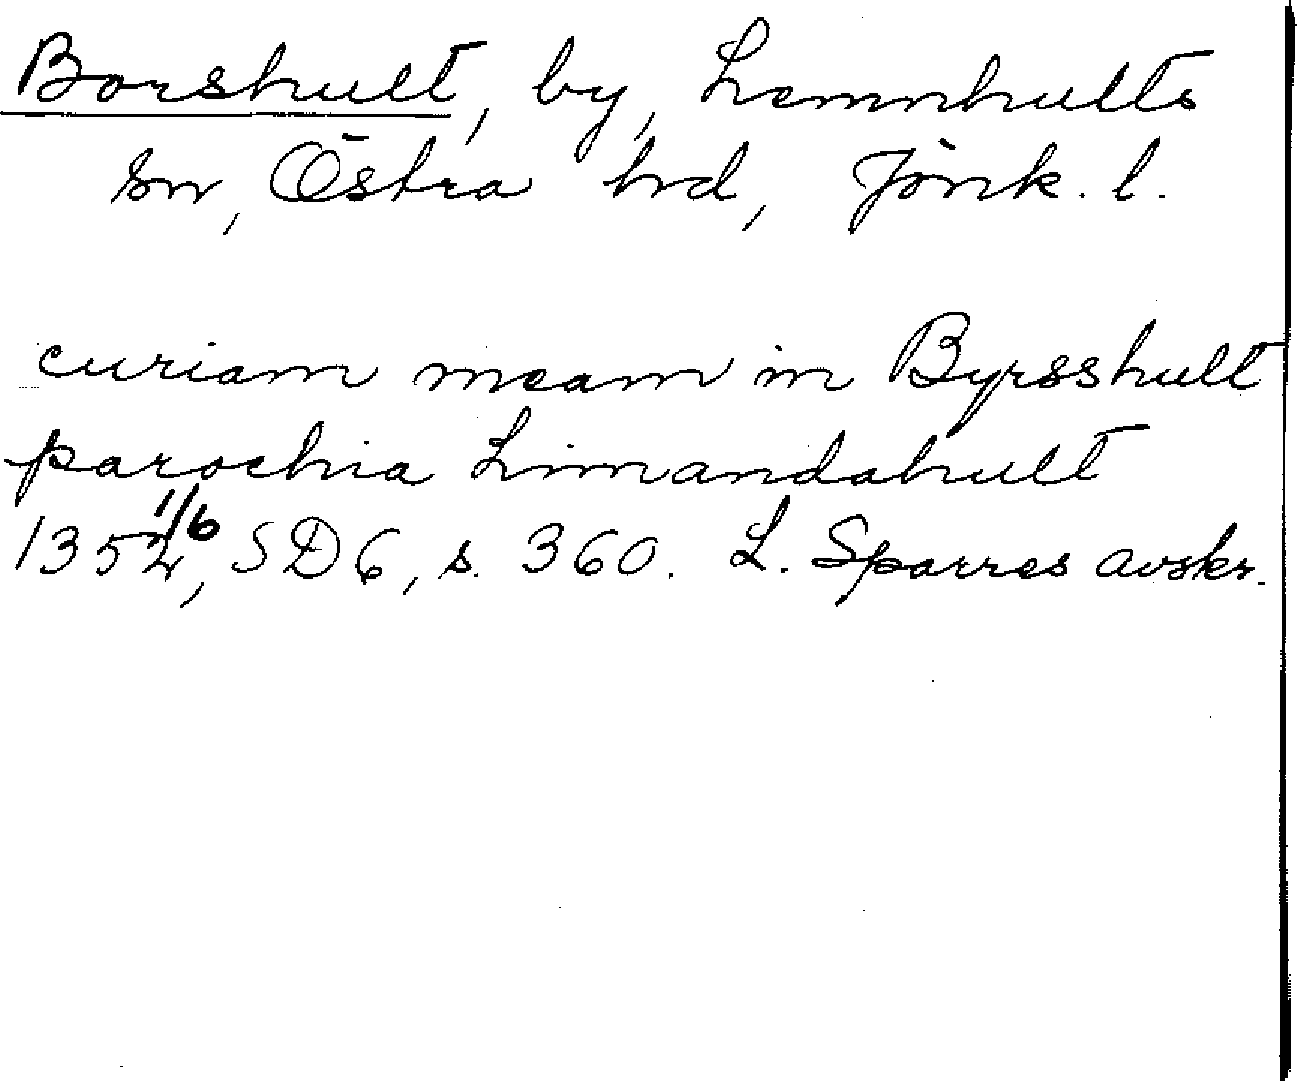 Borshult, by, Lemnhults
sn, Östra hd, Jönk. l.
curiam meam in Byrsshult
parochia Limandahult
1352 1/6, SD6, s. 360. L. Sparres avskr.